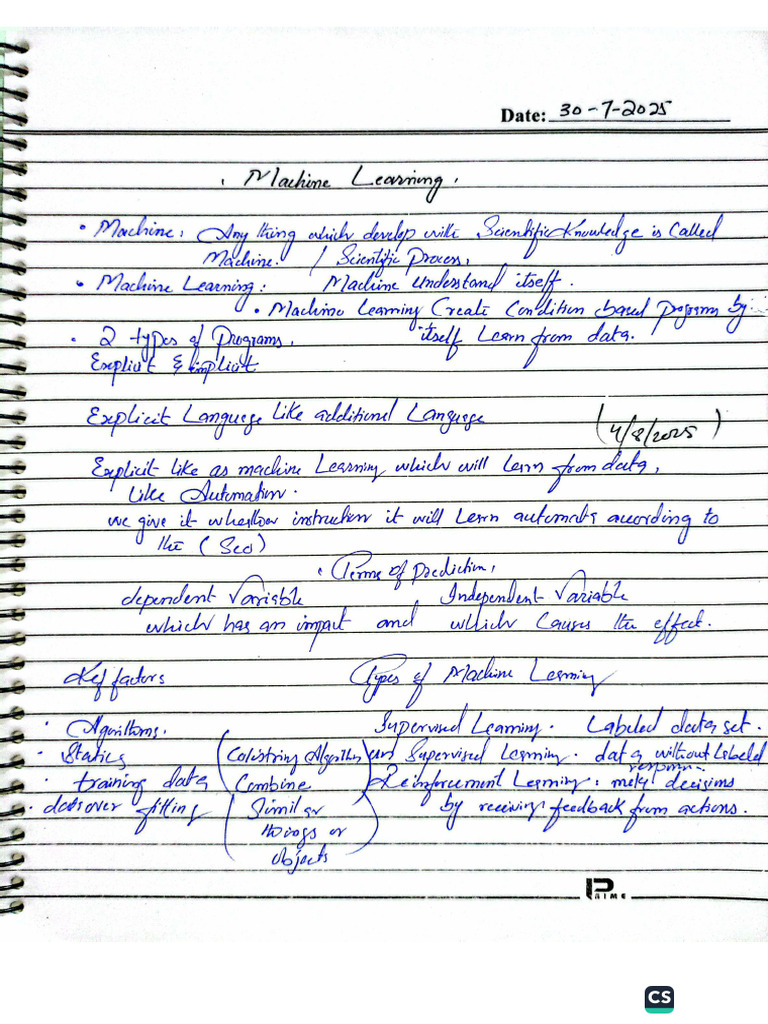 Date: 30-7-2025
Machine Learning.
• Machine: Any thing which develop with Scientific Knowledge is Called
Machine. / Scientific Process.
• Machine Learning: Machine understand itself.
• Machine Learning Create Condition based programs by
• 2 types of Programs. itself Learn from data.
Explicit & implicit
Explicit Language Like additional Language
(4/8/2025)
Explicit like as machine Learning which will learn from data,
Like Automation.
we give it instruction it will Learn according to
the (Seo)
• Terms of prediction.
dependent Variable Independent Variable
which has an impact and which Causes the effect.
Key factors Types of Machine Learning
• Algorithms. Supervised Learning. Labeled data set.
• Statics ( Algorithm and Supervised Learning. data without Labeled
respon
• training data Combine Reinforcement Learning: decisions
• data over fitting Similar by receiving feedback from actions.
things or
objects )
PRIME
CS